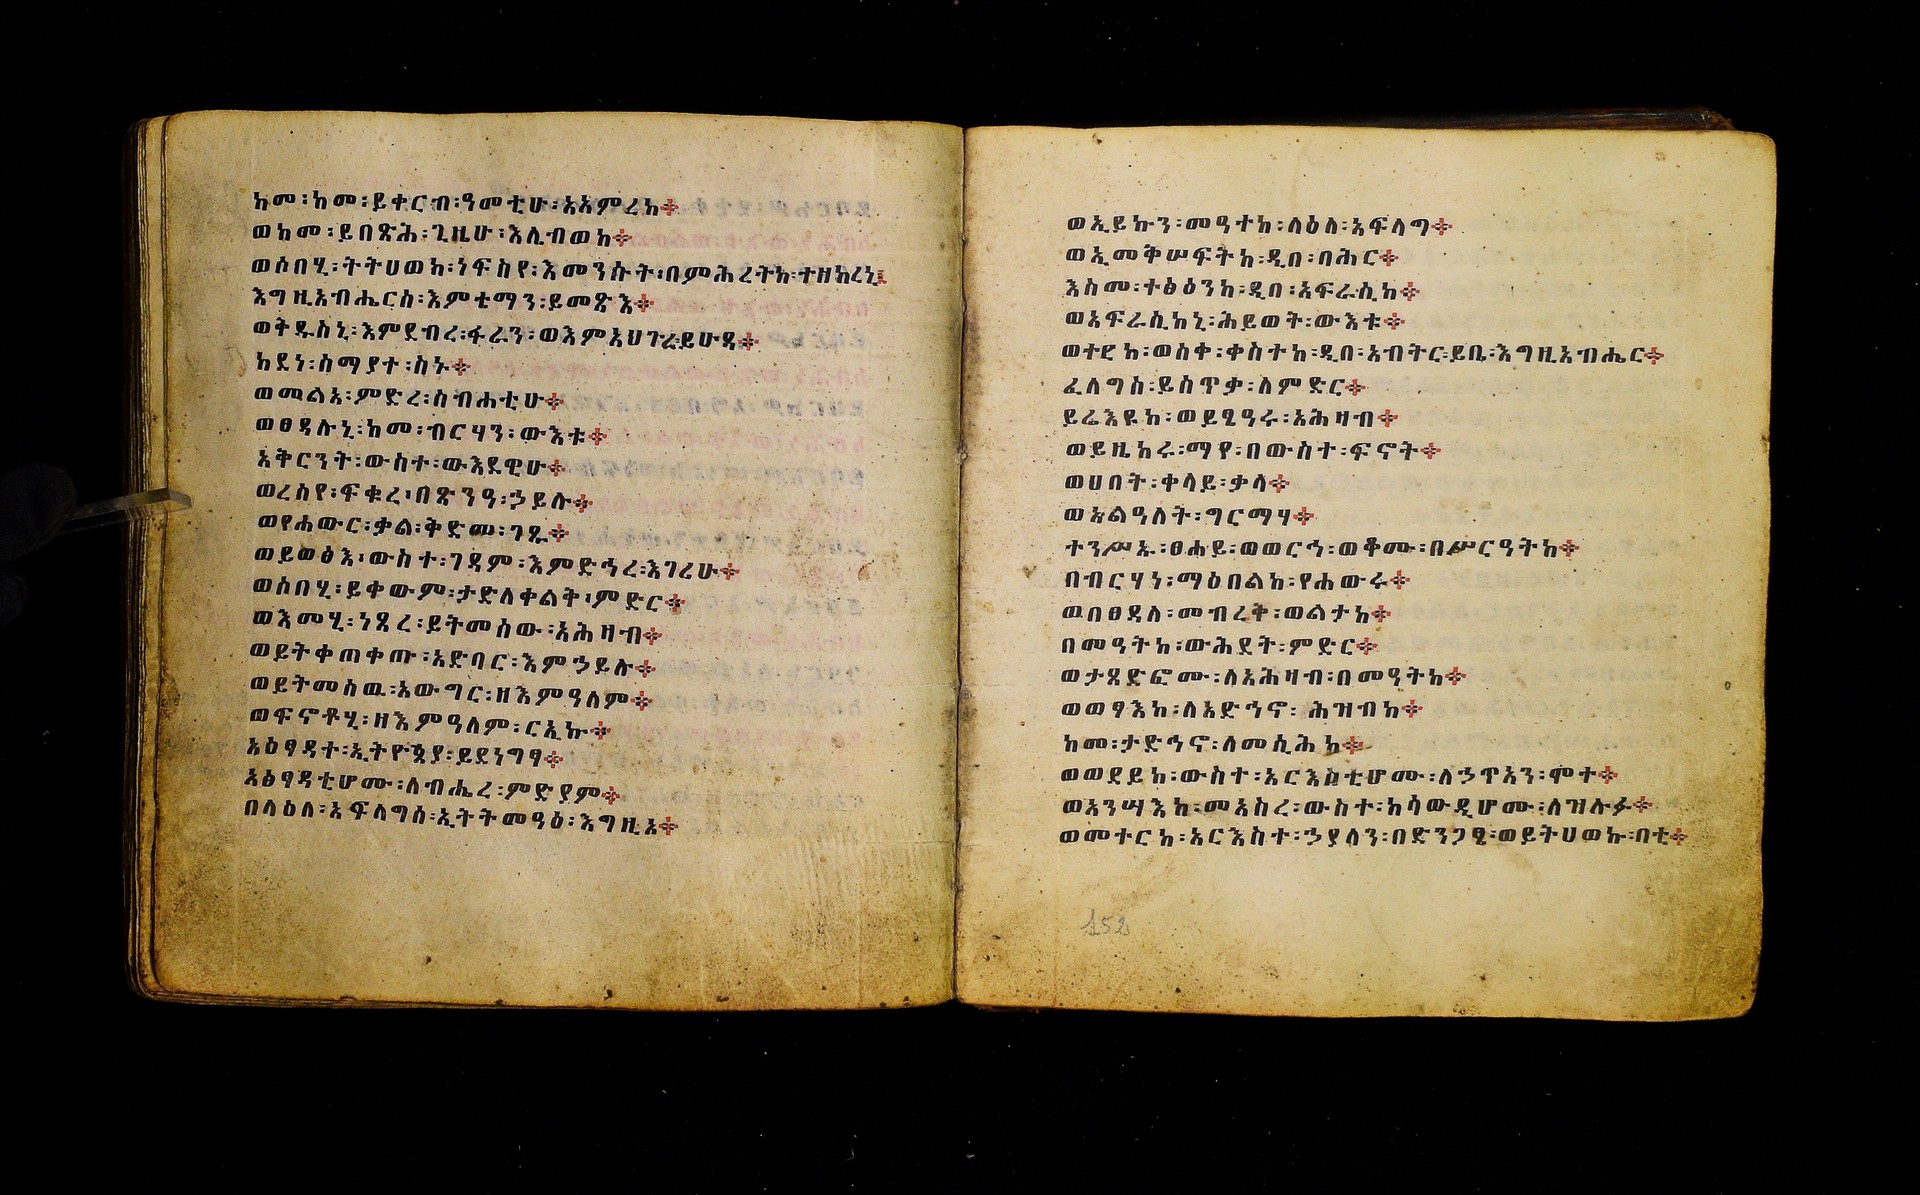 ከመ፡ከመ፡ይቀርብ፡ዓመቲሁ፡አአምረከ፨
ወከመ፡ይበጽሕ፡ጊዜሁ፡እሊብወከ፨
ወሶበሂ፡ትትሀወከ፡ነፍስየ፡እመንሱት፡በምሕረትከ፡ተዘከረኒ፨
እግዚአብሔርሰ፡እምቴማን፡ይመጽእ፨
ወቅዱስኒ፡እምደብረ፡ፋራን፡ወእምአህጉረ፡ይሁዳ፨
ከደነ፡ሰማያተ፡ስኑ፨
ወመልአ፡ምድረ፡ስብሐቲሁ፨
ወፀዳሉኒ፡ከመ፡ብርሃን፡ውእቱ፨
አቅርንት፡ውስተ፡ውእደዊሁ፨
ወረሰየ፡ፍቁረ፡በጽንዓ፡ኃይሉ፨
ወየሐውር፡ቃል፡ቅድመ፡ገጹ፨
ወይወፅእ፡ውስተ፡ገዳም፡እምድኅረ፡እገሪሁ፨
ወሶበሂ፡ይቀውም፡ታድለቀልቅ፡ምድር፨
ወእመሂ፡ነጸረ፡ይትመሰው፡አሕዛብ፨
ወይትቀጠቀጡ፡አድባር፡እምኃይሉ፨
ወይትመሰዉ፡አውግር፡ዘእምዓለም፨
ወፍኖቶሂ፡ዘእምዓለም፡ርኢኩ፨
አዕፃዳተ፡ኢትዮጵያ፡ይደነግፃ፨
አፅፃዳቲሆሙ፡ለብሔረ፡ምድያም፨
በላዕለ፡አፍላግሰ፡ኢትትመዓዕ፡እግዚአ፨
ወኢይኩን፡መዓተከ፡ላዕለ፡አፍላግ፨
ወኢመቅሠፍትከ፡ዲበ፡ባሕር፨
እስመ፡ተፅዕንከ፡ዲበ፡አፍራሲከ፨
ወአፍራሲከኒ፡ሕይወት፡ውእቱ፨
ወሰቀ፡ቀስተከ፡ዲበ፡አብትር፡ይቤ፡እግዚአብሔር፨
ፈለግሰ፡ይሰጥቃ፡ለምድር፨
ይሬእዩከ፡ወይፂዓሩ፡አሕዛብ፨
ወይዚከሩ፡ማየ፡በውስተ፡ፍኖት፨
ወሀበት፡ቀላይ፡ቃላ፨
ወአልዓለት፡ግርማሃ፨
ተንሥኡ፡ፀሐይ፡ወወርኅ፡ወቆሙ፡በሥርዓትከ፨
በብርሃነ፡ማዕበልከ፡የሐውሩ፨
ወበፀዳለ፡መብረቅ፡ወልታከ፨
በመዓትከ፡ውሕደት፡ምድር፨
ወታጸድፎሙ፡ለአሕዛብ፡በመዓትከ፨
ወወፃእከ፡ለአድኅኖ፡ሕዝብከ፨
ከመ፡ታድኅኖ፡ለመሲሕከ፨
ወወደይከ፡ውስተ፡አርእስቲሆሙ፡ለኃጥአን፡ሞተ፨
ወአንሣእከ፡መአስረ፡ውስተ፡ክሳውዲሆሙ፡ለዝሉፉ፨
ወመተርከ፡አርእስተ፡ኃያላን፡በድንጋፄ፡ወይትሀወኩ፡ቦቲ፨
152